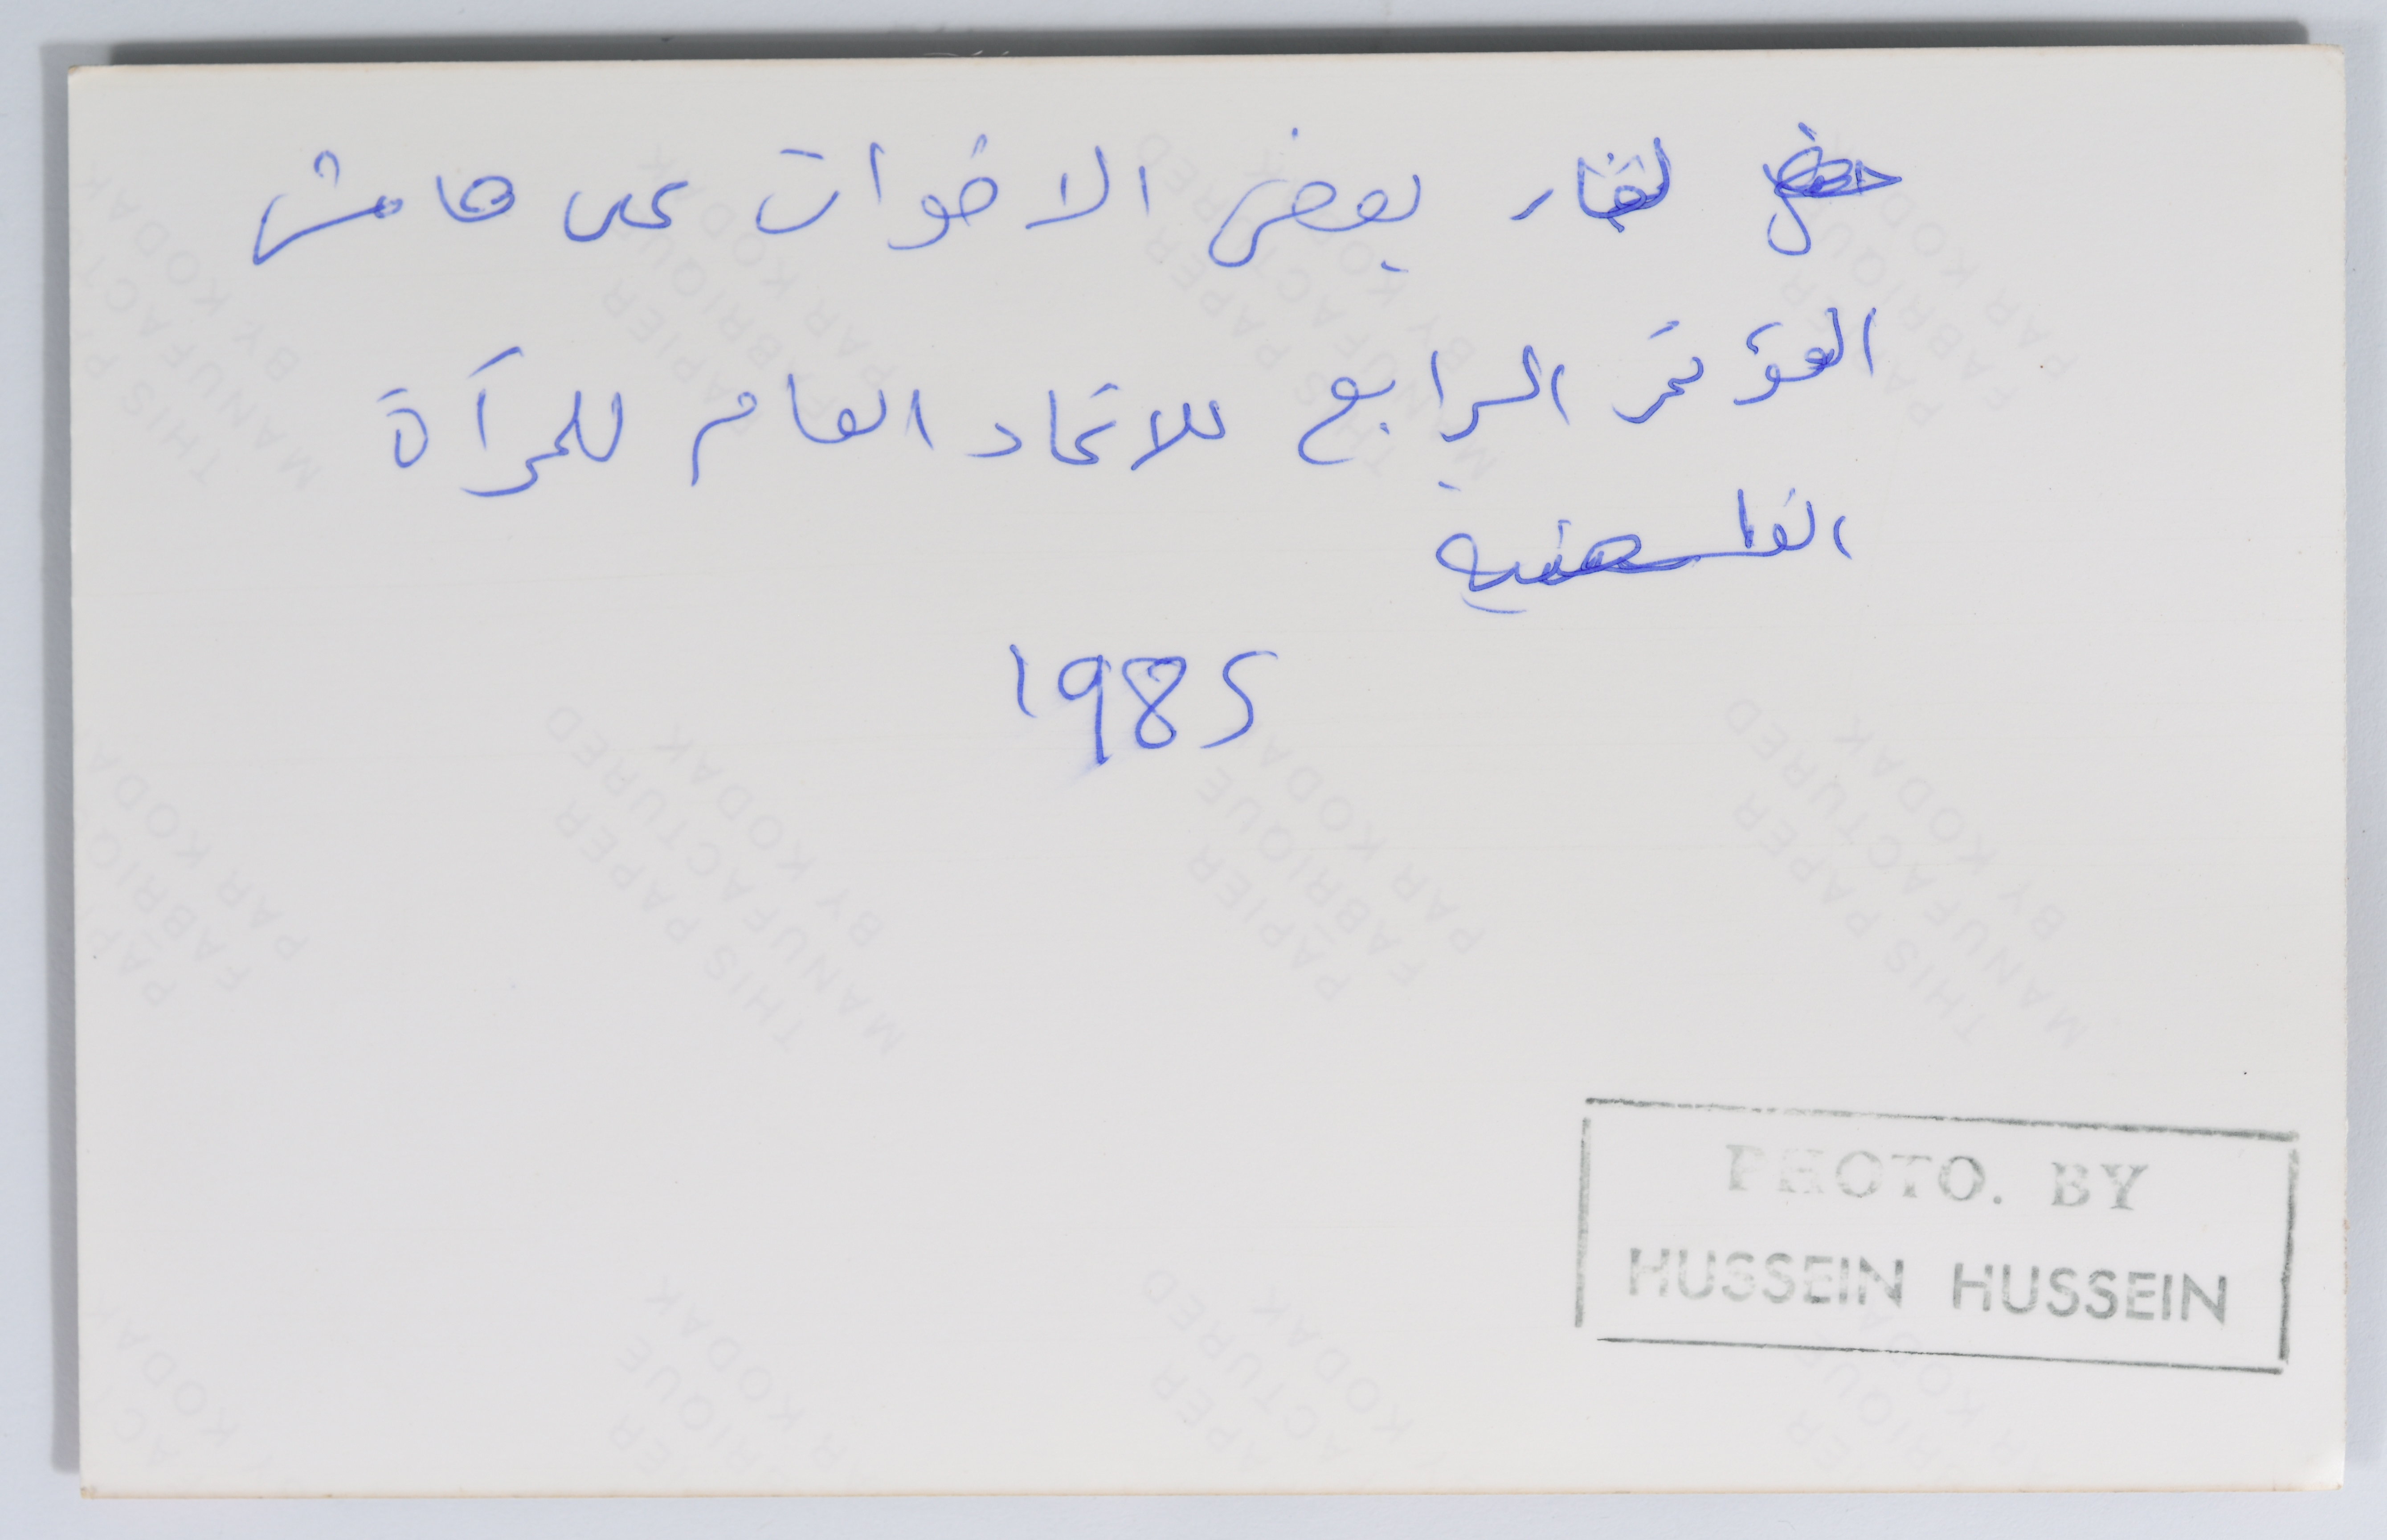 لقاء بعض الاخوات على هامش
المؤتمر الرابع للاتحاد العام للمرأة
الفلسطنيه
1985
PHOTO. BY
HUSSEIN HUSSEIN
THIS PAPER
MANUFACTURED
BY KODAK
PAPIER
FABRIQUE
PAR KODAK